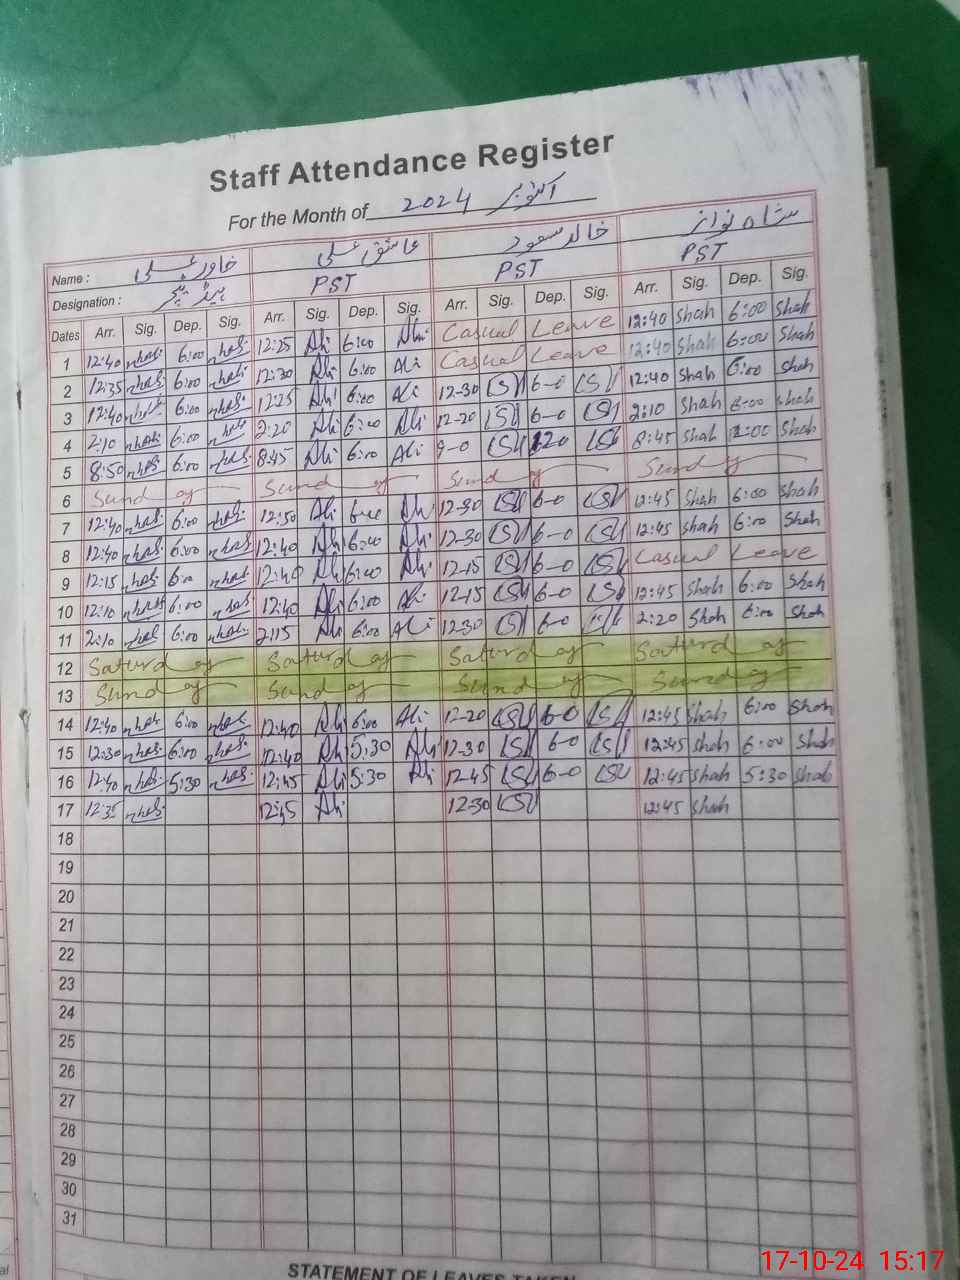 Staff Attendance Register
For the Month of 2024 اکتوبر
Name : خاور علی عاشق علی خالد مسعود شاہ نواز
Designation : ہیڈ ٹیچر PST PST PST
Dates Arr. Sig. Dep. Sig. Arr. Sig. Dep. Sig. Arr. Sig. Dep. Sig. Arr. Sig. Dep. Sig.
1 12:40 6:00 12:25 Ali 6:00 Ali Casual Leave 12:40 Shah 6:00 Shah
2 12:35 6:00 12:30 Ali 6:00 Ali Casual Leave 12:40 Shah 6:00 Shah
3 12:40 6:00 12:25 Ali 6:00 Ali 12-30 6-0 12:40 Shah 6:00 Shah
4 2:10 6:00 2:20 Ali 6:00 Ali 12-20 6-0 2:10 Shah 6:00 Shah
5 8:50 6:00 8:45 Ali 6:00 Ali 9-0 8:45 Shah 12:00 Shah
6 Sunday Sunday Sunday Sunday
7 12:40 6:00 12:50 Ali 6:00 Ali 12-30 6-0 12:45 Shah 6:00 Shah
8 12:40 6:00 12:40 Ali 6:00 Ali 12-30 6-0 12:45 Shah 6:00 Shah
9 12:15 6:00 12:40 Ali 6:00 Ali 12-15 6-0 Casual Leave
10 12:10 6:00 12:40 Ali 6:00 Ali 12-15 6-0 12:45 Shah 6:00 Shah
11 2:10 6:00 2:15 Ali 6:00 Ali 12-30 6-0 2:20 Shah 6:00 Shah
12 Saturday Saturday Saturday Saturday
13 Sunday Sunday Sunday Sunday
14 12:40 6:00 12:40 Ali 6:00 Ali 12-20 6-0 12:45 Shah 6:00 Shah
15 12:30 6:00 12:40 Ali 5:30 Ali 12-30 6-0 12:45 Shah 6:00 Shah
16 12:40 5:30 12:45 Ali 5:30 Ali 12-45 6-0 12:45 Shah 5:30 Shah
17 12:35 12:45 Ali 12-30 12:45 Shah
18
19
20
21
22
23
24
25
26
27
28
29
30
31
STATEMENT OF LEAVES TAKEN
17-10-24 15:17